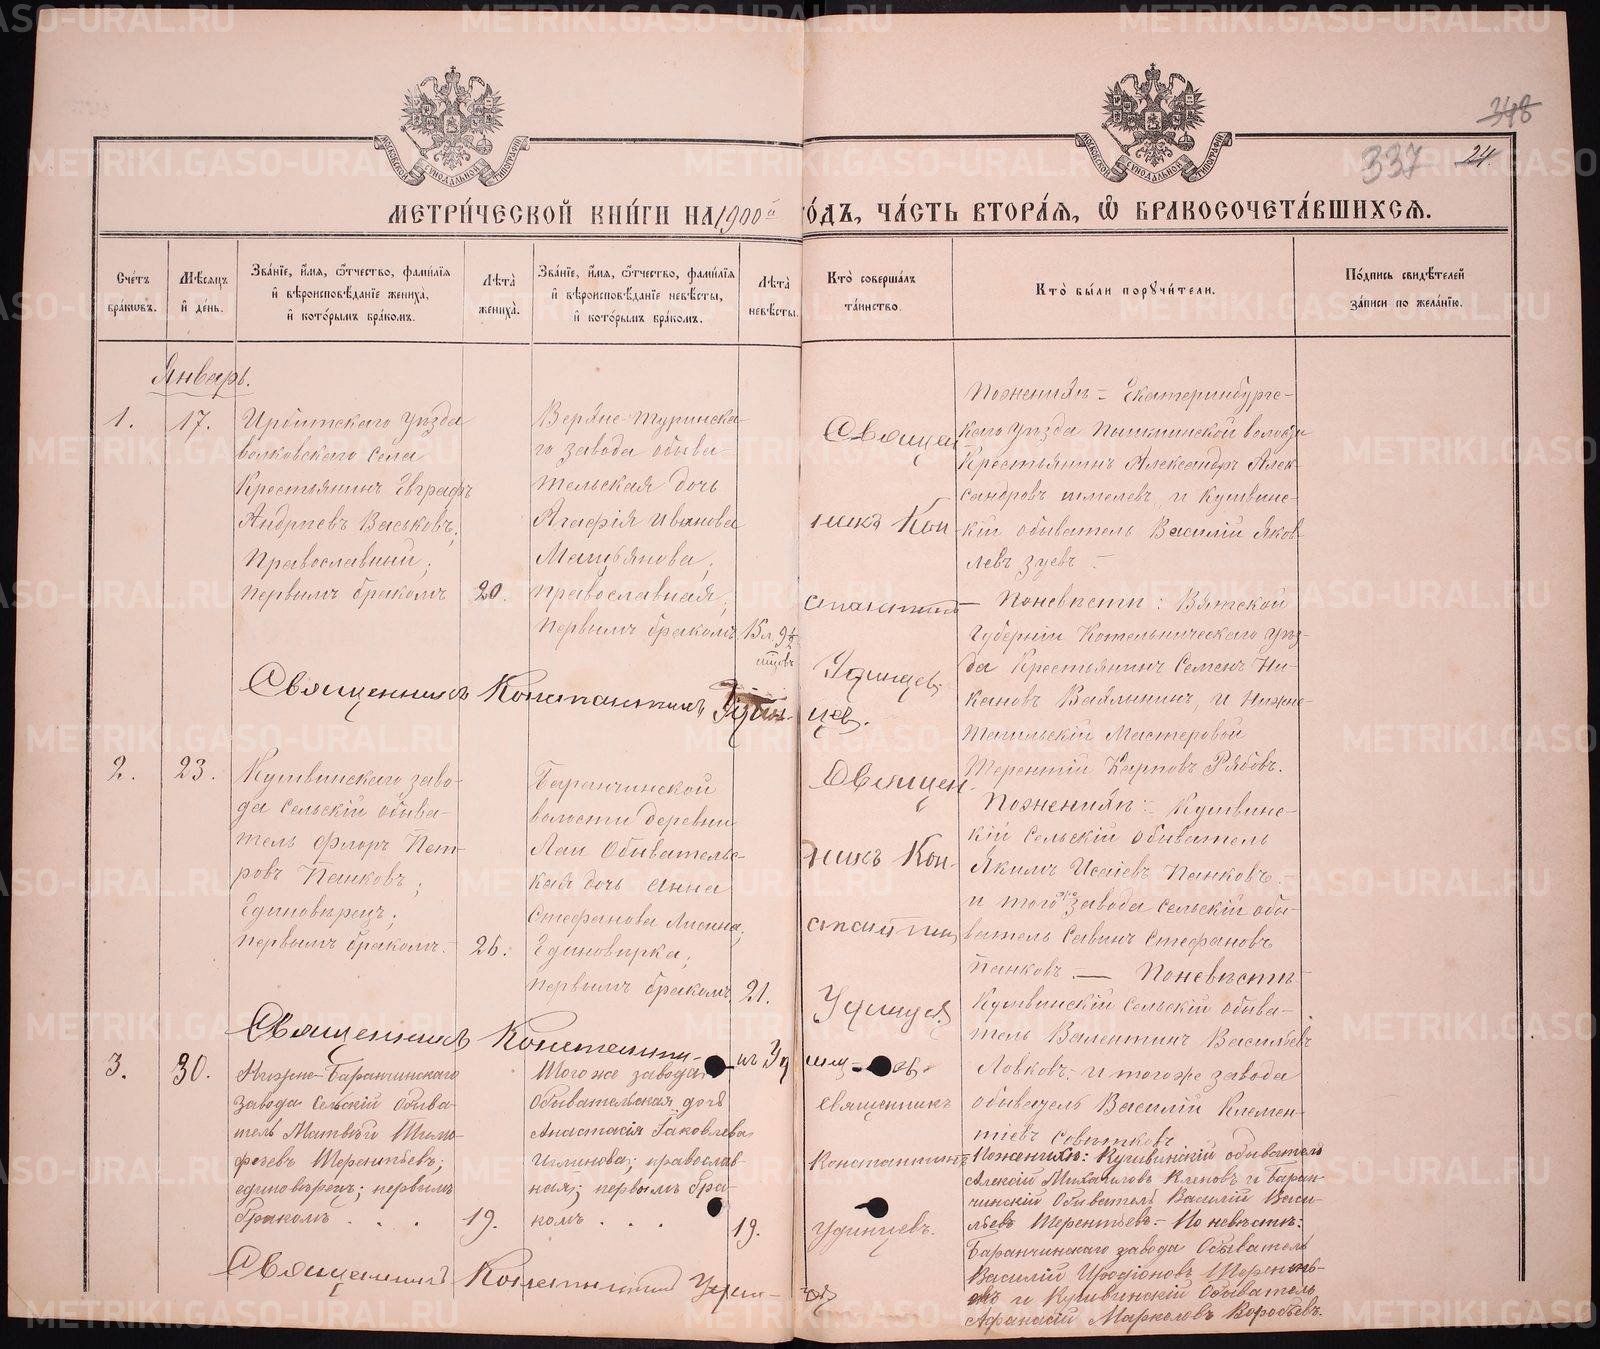 348
337 24.
МОСКОВСКОЙ СУНОДАЛЬНОЙ ТИПОГРАФІИ
МОСКОВСКОЙ СУНОДАЛЬНОЙ ТИПОГРАФІИ
МЕТРИ́ЧЕСКОЙ КНИ́ГИ НА 1900й ГО́ДЪ, ЧА́СТЬ ВТОРА́Я, Ѡ БРАКОСОЧЕТА́ВШИХСЯ.
Сче́тъ бра́кѡвъ.
Мѣ́сяцъ и҆ де́нь.
Зва́нїе, и҆́мя, ѻ҆́тчество, фами́лїя и҆ вѣроисповѣ́данїе жениха̀, и҆ кото́рымъ бра́комъ.
Лѣ́та жениха̀.
Зва́нїе, и҆́мя, ѻ҆́тчество, фами́лїя и҆ вѣроисповѣ́данїе невѣ́сты, и҆ кото́рымъ бра́комъ.
Лѣ́та невѣ́сты.
Кто̀ соверша́лъ та́инство.
Кто̀ бы́ли порꙋчи́тели.
По́дпись свидѣ́телей за́писи по жела́нїю.
Январь.
1.
17.
Ирбитскаго уѣзда
волковскаго села
Крестьянинъ Евграфъ
Андреевъ Васьковъ;
Православный;
первымъ бракомъ
20.
Верхне-Туринска-
го завода обыва
тельская дочь
Агафія Иванова
православная;
первымъ бракомъ
Священ
никъ Кон-
стантинъ
Удинцевъ
Поженихѣ - Екатеринбургс-
каго уѣзда Пышминской волости
Крестьянинъ Александръ Алек-
сандровъ Шмелевъ, и Кушвинс-
кій обыватель Василій Яков-
левъ Зуевъ -
Поневѣстѣ: Вятской
Губерніи Котельническаго уѣз-
да Крестьянинъ Семенъ Ни-
кановъ и Нижне-
Тагильскій Мастеровой
Терентій Карповъ Рябовъ.
Священникъ Константинъ Удин-
цев.
2.
23.
Кушвинскаго заво-
да сельскій обыва-
тель Флоръ Пет-
ровъ Панковъ;
Единовѣрецъ;
первымъ бракомъ.
Баранчинской
волости деревни
Лаи Обывательс-
кая дочь Анна
Стефанова
Единовѣрка;
первымъ бракомъ
21.
Священ-
никъ Кон-
стантинъ
Поженихѣ: Кушвинс-
кій сельскій обыватель
Якимъ Исаіевъ Панковъ -
и тогоже завода сельскій обы-
ватель Савинъ Стефановъ
Панковъ. — Поневѣстѣ
Кушвинскій сельскій обыва-
тель Валентинъ Васильевъ
и тогоже завода
обыватель Василій Клемен-
тіевъ
Священникъ Константи-
нъ Уд
3.
30.
Нижне-Баранчинскаго
завода сельскій обыва-
тель Матвѣй Тимо-
феевъ Терентьевъ;
единовѣрецъ; первымъ
бракомъ . . .
19.
Тогоже завода
Обывательская дочь
Анастасія Іаковлева
православ-
ная; первымъ бра-
комъ . . .
19.
священникъ
Константинъ
Удинцевъ.
Поженихѣ: Кушвинскій обыватель
Алексій Михаиловъ Кленовъ и Баран-
чинскій Обыватель Василій Васи-
льевъ Терентьевъ - По невѣстѣ:
Баранчинскаго завода Обыватель
Василій Иродіоновъ Терентье-
въ и Кушвинскій Обыватель
Афанасій Маркеловъ Воробьевъ.
Священникъ Константинъ